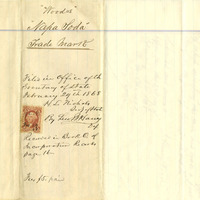 "Woods"
"Napa Soda"
Trade Mark
Filed in Office of the
Secretary of State
February 24th 1868
H. L. Nichols
Secy of State
By Geo
Dep
Recorded in Book of
Incorporation Records
page 16